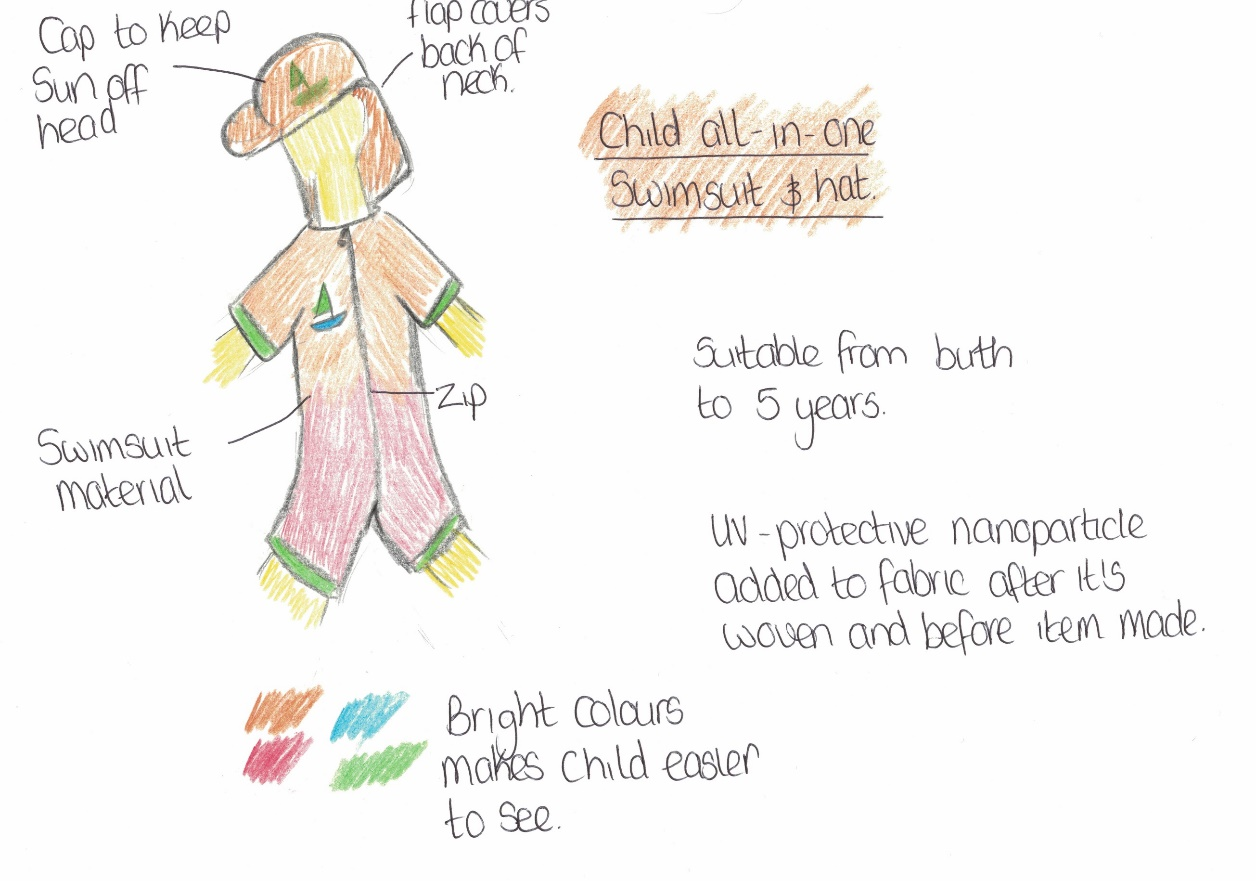 Cap to keep
Sun off
head
flap covers
back of
neck.
Child all-in-one
Swimsuit & hat.
Suitable from birth
to 5 years.
Zip
Swimsuit
material
UV-protective nanoparticle
added to fabric after it's
woven and before item made.
Bright colours
makes child easier
to see.